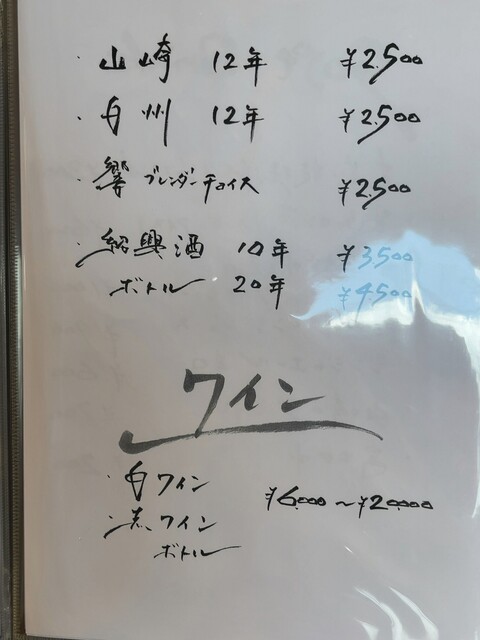 ・山崎 12年 ¥2,500
・白州 12年 ¥2,500
・響 ブレンダーチョイス ¥2,500
・紹興酒 10年 ¥3,500
ボトル 20年 ¥4,500
ワイン
・白ワイン
・赤ワイン ¥6,000〜¥20,000
ボトル